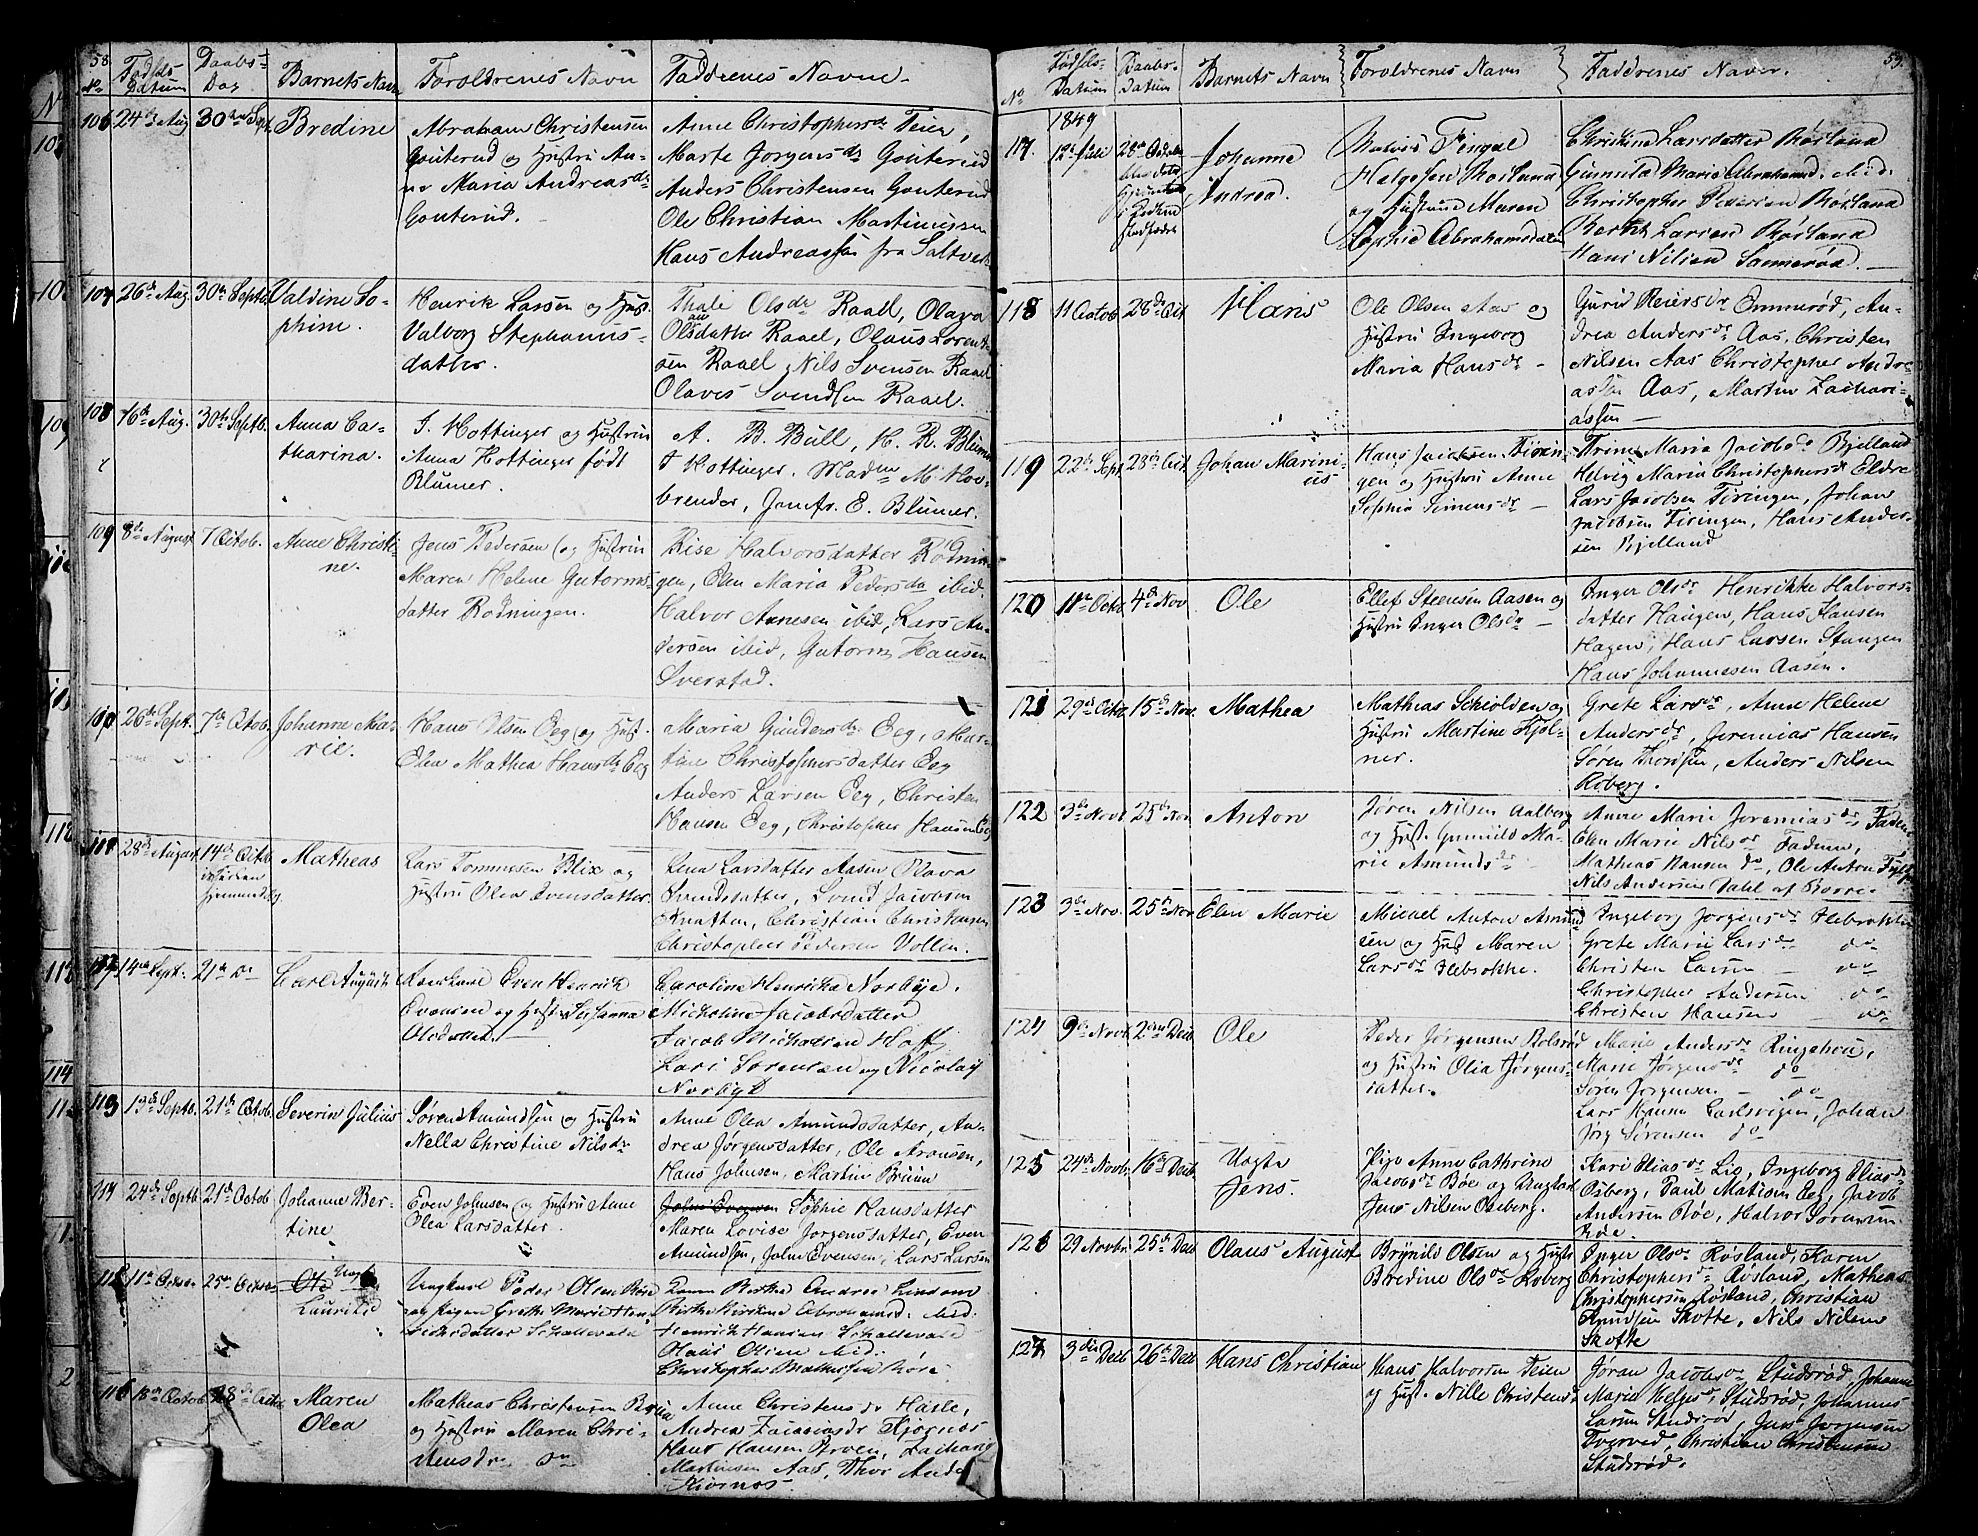 58
No
Fødsels-
Datum
Daabs-
Dag
Barnets Navn
Foroldrenes Navn
Faddrenes Navne.
106 24de Aug 30te Sept. Bredine
Abraham Christensen
Gouterud og Hustru An-
ne Maria Andreasdr
Gouterud.
Anne Christophersdr Teier,
Marte Jorgensdr Gouterud
Anders Christensen Gouterud
Ole Christian Martinussen
Hans Andreassen fra Saltvek
107 26de Aug. 30te Septb Valdine So-
phine.
Henrik Larsen og Hust.
Valborg Stephanus-
datter.
Thale Olsdr Raael, Olava
Olsdatter Raael, Olaus Lorent-
sen Raael, Nils Svensen Raael
Olaves Svendsen Raael.
108 16de Aug. 30te Septb. Anna Ca-
tharina.
J. Hottinger og Hustru
Anna Hottinger født
Blumer.
A. B. Bull, H. R. Blumer
J Hottinger. Madm M. Hov-
brender, Jomfr. E. Blumer.
109 8de August 7 Octob. Anne Christi-
ne.
Jens Pedersen og Hustru
Maren Helene Gutorms-
datter Rodningen.
Rise Halvorsdatter Rodnin-
gen, Elen Maria Pedersdr ibid.
Halvor Arnesen ibid, Lars An-
dersen ibid, Gutorm Hansen
Sverstad.
110 26de Sept. 7de Octob. Johanne Ma-
rie.
Hans Olsen Eeg og Hust.
Elen Mathea Hansdr Eeg
Maria Gundersdr Eeg, Mar-
tine Christophersdatter Eeg
Anders Larsen Eeg, Christen
Hansen Eeg, Christopher Hansen Eeg
111 28de August 14de Octob Matheas
hjemmedøbt
Lars Tommesen Blix og
Hustru Olea Evensdatter.
Lena Larsdatter Aasen Olava
Svendsdatter, Svend Jacobsen
Knatten, Christian Christensen
Christopher Pedersen Vollen.
112 14de Sept. 21de do Carl August
Even Henrich
Evensen og Hustru Susanna
Olsdatter.
Caroline Henricka Norbye.
Micheline Jacobsdatter
Jacob Michaelsen Hoff
Lars Sorensen og Nicolay
Norbye
113 19de Septb. 21de Octob. Severin Julius
Søren Amundsen og Hustru
Nella Christine Nilsdr
Anne Olea Amundsdatter, An-
drea Jørgensdatter, Ole Aronsen,
Hans Johnsen, Martin Bruun
114 24de Septb 21de Octob Johanne Ber-
tine
Even Johnsen og Hustru Anne
Olea Larsdatter.
John Evensen Sophie Hansdatter
Maren Lovise Jorgensdatter, Even
Amundsen, John Evensen, Lars Larsen
115 11te Octob 25de Octob Ole Uægte
Laurits
Ungkarl Peder Olsen Røre
og Pigen Grethe Marie Hen-
richsdatter Schallevald
Berthe Andrea Lindom
Berthe Kirstine Abrahamsd. ibid.
Henrich Hansen Schallevald
Hans Olsen ibid.
Christopher Mathiesen Røre
116 18de Octob 28de Octob Maren
Olea
Mathias Christensen
og Hustru Maren Chri-
stensdr do
Anne Christensdr Hasle,
Andrea Zacariasdr Kjørnes
Hans Hansen Ørven, Zacharias
Martinsen Aas, Thor Ander
Kiørnes
59.
No
Fødsels-
Datum
Daabs-
Datum
Barnets Navn
Foroldrenes Navn
Faddrenes Navne.
1849
117. 12te Juli 28de Octob Johanne
Andrea.
Fingal
Helgesen Røsland
og Hustrue Maren
Sophie Abrahamsdatter
Christine Larsdatter Røsland
Gunnild Marie Abrahamsd. ibid.
Christopher Pedersen Røsland
Bernt Larsen Røsland
Hans Nilsen Sannerød.
118 11 Octob 28de Oct. Hans
Ole Olsen Aas og
Hustru Ingeborg
Maria Hansdr
Gurid Reiersdr Ommerød, An-
drea Andersdr Aas, Christen
Nilsen Aas Christopher Andre-
assen Aas, Martin Zachari-
assen
119 22de Sept 28de Oct. Johan Marini-
us
Hans Jacobsen Tirin-
gen og Hustru Anne
Sophia Simensdr
Trine Maria Jacobsdr Bjelland
Helvig Maria Christophersdr Eldre
Lars Jacobsen Tiringen, Johan
Jacobsen Tiringen, Hans Ander-
sen Bjelland
120 11te Octb. 4de Nov Ole
Ellef Steensen Aasen og
Hustru Inger Olsdr
Inger Olsdr Henrikke Halvors-
datter Haugen, Hans Hansen
Hagen, Hans Larsen Stangen
Hans Johannesen Aasen.
121 29de Octb 15de Nov. Mathea
Mathias Schiolden og
Hustru Martine Kjol-
ner.
Grete Larsdr, Anne Helene
Andersdr, Jeremias Hansen
Søren Thordsen, Anders Nilsen
Roberg.
122 3de Novb. 25de Nov Anton
Jøren Nilsen Aalberg
og Hust. Gunnild Ma-
rie Amundsdr
Anne Marie Jeremiasdr Fadum
Elen Marie Nilsdr Fadum,
Mathias Hansen do, Ole Anton
Nils Andersen Dahl af Borre.
123 3de Nov. 25de Nov Elen Marie
Micael Anton Amund-
sen og Hust Maren
Larsdr Hebsokke.
Ingeborg Jørgensdr Hebsokke
Grete Marie Larsdr do
Christen Larsen do
Christopher Andersen do
Christen Hansen do
124 9de Novb. 2den Decb Ole
Peder Jørgensen Rolsrød
og Hustru Olia Jørgens-
datter.
Marie Andersdr Ringshoug,
Marie Jørgensdr do
Søren Jørgensen do
Lars Hansen Carlsvigen, Johan
Jørg Sørensen do
125 24de Novb. 16de Decb. Uægte
Jens.
Pige Anne Cathrine
Jacobsdr Bøe og Ungkarl
Jens Nilsen Oseberg.
Kari Eliasdr Lie, Ingeborg Eliasdr
Osberg, Paul Matisen Eeg, Jacob
Andersen Bøe, Halvor Sorensen
Røe.
126 29 Novbr 25de Decb Olaus August
Brynild Olsen og Hustr.
Bredine Olsdr Roberg
Inger Olsdr Røsland, Karen
Christophersdr Røsland, Mathias
Christophersen Røsland, Christian
Amundsen Skotte, Nils Nilsen
Skotte
127. 3die Decb 26de Decb Hans Christian
Hans Halvorsen Teien
og Hust. Nille Christensdr
Jøran Jacobsdr Studsrød, Johanne
Maria Mathisdr Studsrød, Johannes
Larsen Studsrød, Jens Jørgensen
Tverved, Christian Christensen
Studsrød.